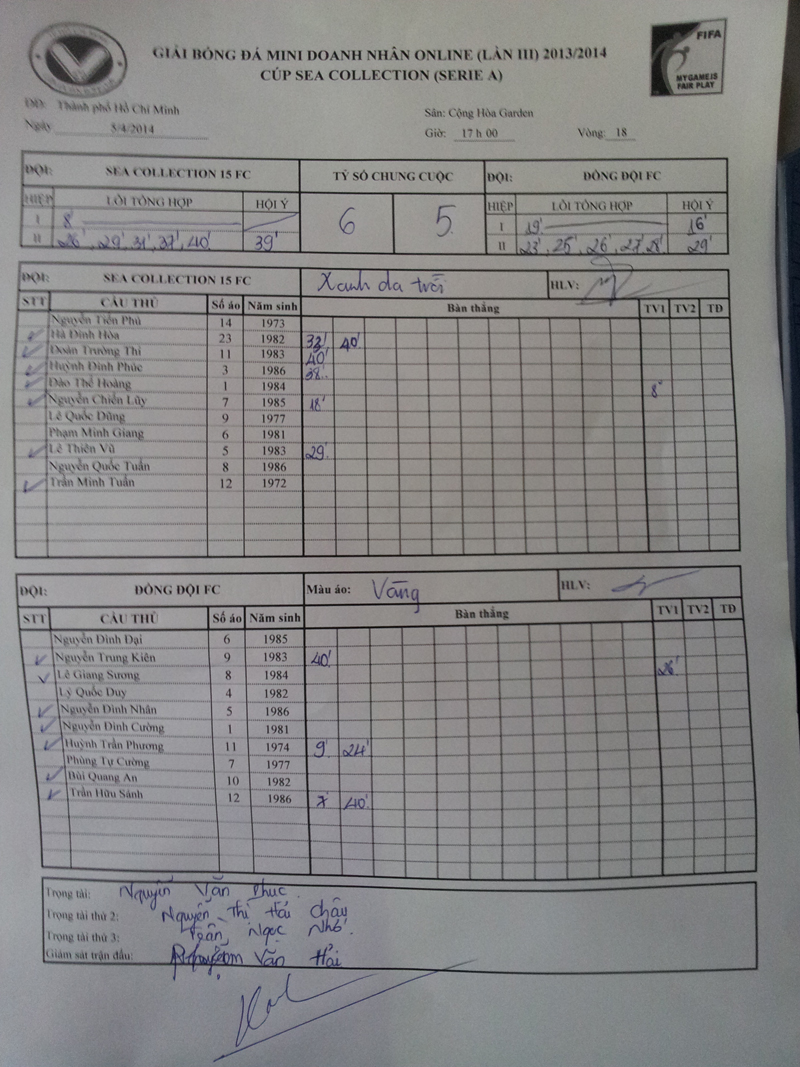 GIẢI BÓNG ĐÁ MINI DOANH NHÂN ONLINE (LẦN III) 2013/2014
CÚP SEA COLLECTION (SERIE A)
FIFA
MYGAMEIS
FAIR PLAY
DĐ: Thành phố Hồ Chí Minh Sân: Cộng Hòa Garden
Ngày 5/4/2014 Giờ: 17 h 00 Vòng: 18
ĐỘI: SEA COLLECTION 15 FC TỶ SỐ CHUNG CUỘC ĐỘI: ĐỒNG ĐỘI FC
HIỆP LỖI TỔNG HỢP HỘI Ý 6 5 HIỆP LỖI TỔNG HỢP HỘI Ý
I 8' I 19' 16'
II 26', 29', 31', 37', 40' 39' II 23', 25', 26', 27', 28' 29'
ĐỘI: SEA COLLECTION 15 FC Xanh da trời HLV:
STT CẦU THỦ Số áo Năm sinh Bàn thắng TV1 TV2 TĐ
Nguyễn Tiến Phú 14 1973
Hà Đình Hòa 23 1982 40'
Đoàn Trường Thi 11 1983 40'
Huỳnh Đình Phúc 3 1986 38'
Đào Thế Hoàng 1 1984 8'
Nguyễn Chiến Lũy 7 1985 18'
Lê Quốc Dũng 9 1977
Phạm Minh Giang 6 1981
Lê Thiên Vũ 5 1983 29'
Nguyễn Quốc Tuấn 8 1986
Trần Minh Tuấn 12 1972
ĐỘI: ĐỒNG ĐỘI FC Màu áo: Vàng HLV:
STT CẦU THỦ Số áo Năm sinh Bàn thắng TV1 TV2 TĐ
Nguyễn Đình Đại 6 1985
Nguyễn Trung Kiên 9 1983 40'
Lê Giang Sương 8 1984 26'
Lý Quốc Duy 4 1982
Nguyễn Đình Nhân 5 1986
Nguyễn Đình Cường 1 1981
Huỳnh Trần Phương 11 1974 9' 24'
Phùng Tự Cường 7 1977
Bùi Quang An 10 1982
Trần Hữu Sánh 12 1986 7' 40'
Trọng tài: Nguyễn Văn Phúc
Trọng tài thứ 2: Nguyễn Thị Hải Châu
Trọng tài thứ 3: Trần Ngọc Nhớ
Giám sát trận đấu: Văn Hải